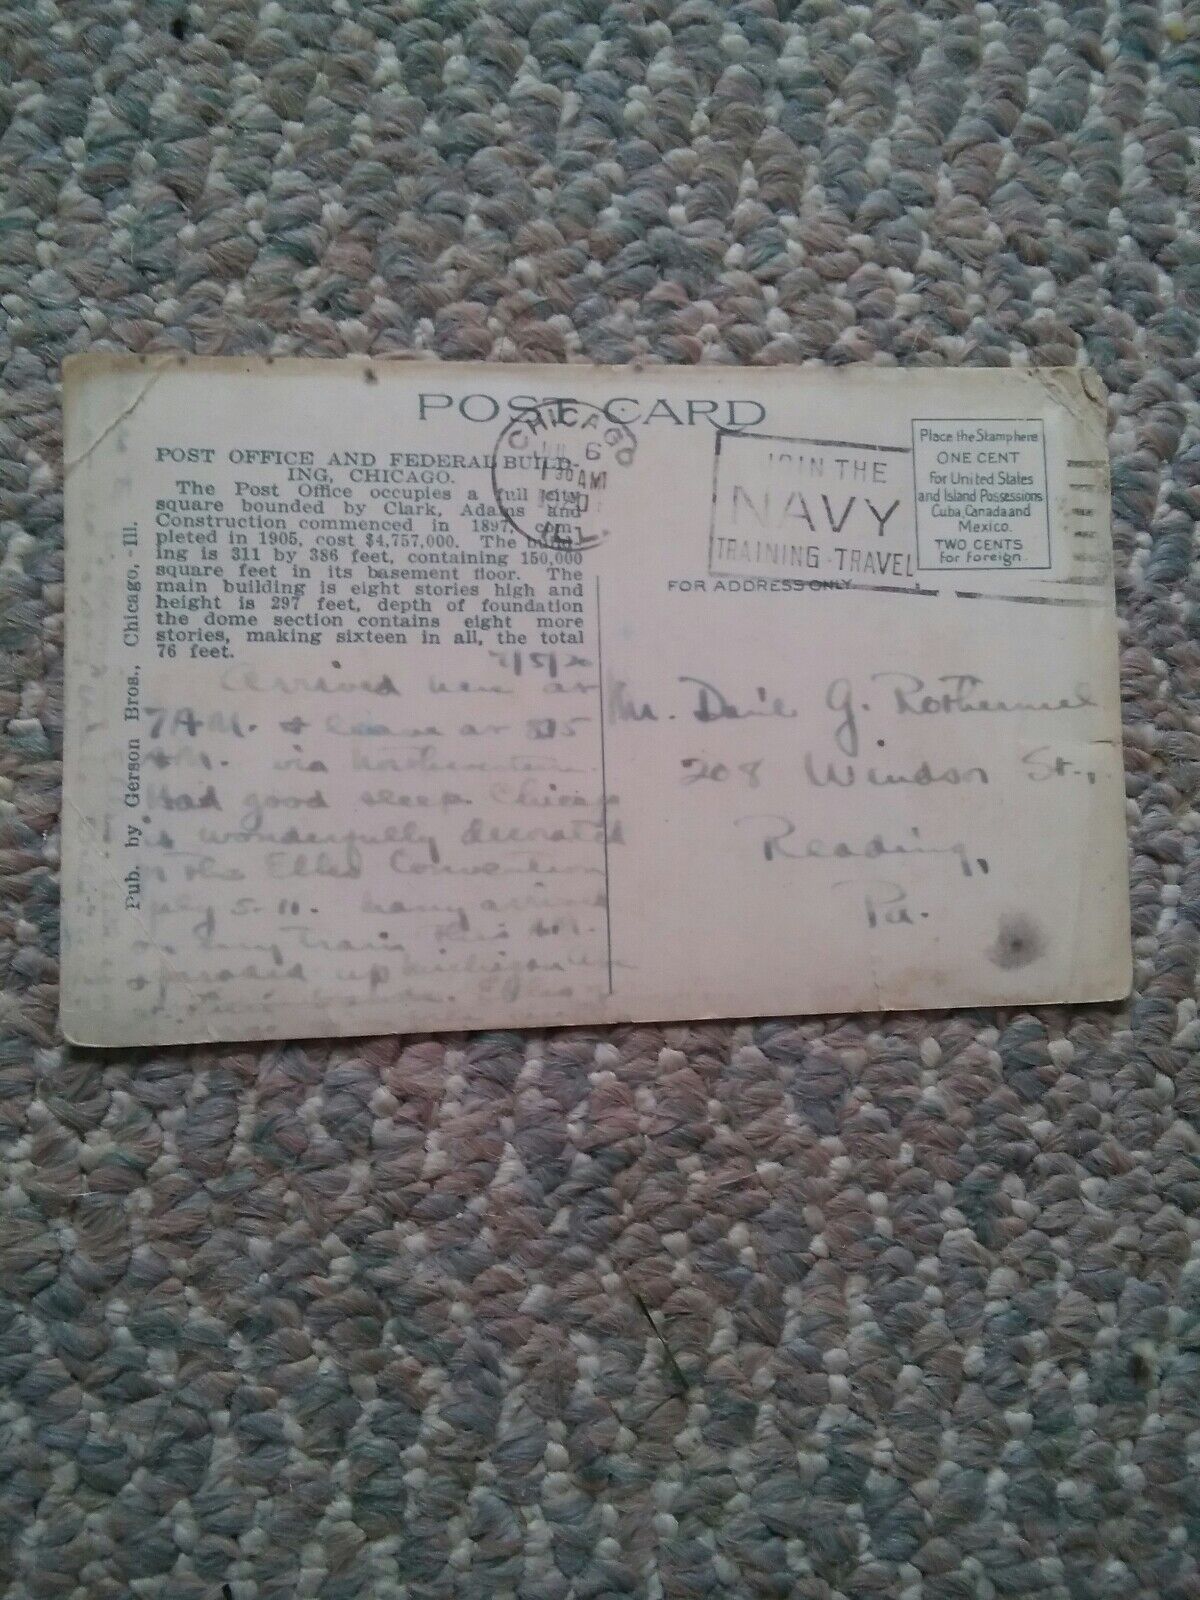 POST CARD
CHICAGO
6
AM
ILL
JOIN THE
NAVY
TRAINING - TRAVEL
Place the Stamp here
ONE CENT
for United States
and Island Possessions
Cuba, Canada and
Mexico.
TWO CENTS
for Foreign.
FOR ADDRESS ONLY.
POST OFFICE AND FEDERAL BUILD-
ING, CHICAGO.
The Post Office occupies a full city
square bounded by Clark, Adams and
Construction commenced in 1897, com-
pleted in 1905, cost $4,757,000. The build-
ing is 311 by 386 feet, containing 150,000
square feet in its basement floor. The
main building is eight stories high and
height is 297 feet, depth of foundation
the dome section contains eight more
stories, making sixteen in all, the total
76 feet.
Pub. by Gerson Bros., Chicago, Ill.
7/5/20
Arrived here at
7 A.M. & leave at 815
A.M. via Northwestern.
Had good sleep. Chicago
is wonderfully decorated
the Elks Convention
July 5-11. Many arrived
on my train this A.M.
& paraded up Michigan Ave
Mr. G. Rothermel
208 Windsor St.,
Reading,
Pa.